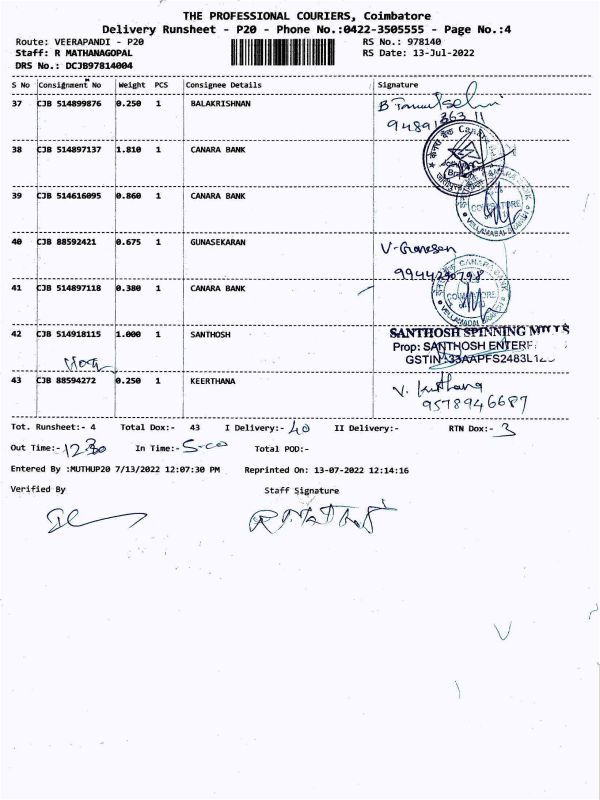 THE PROFESSIONAL COURIERS, Coimbatore
Delivery Runsheet - P20 - Phone No.:0422-3505555 - Page No.:4
Route: VEERAPANDI - P20 RS No.: 978140
Staff: R MATHANAGOPAL RS Date: 13-Jul-2022
DRS No.: DCJB97814004
S No Consignment No Weight PCS Consignee Details Signature
37 CJB 514899876 0.250 1 BALAKRISHNAN
38 CJB 514897137 1.810 1 CANARA BANK
39 CJB 514616095 0.860 1 CANARA BANK
40 CJB 88592421 0.675 1 GUNASEKARAN V-Ganesan
9944290798
41 CJB 514897118 0.380 1 CANARA BANK
42 CJB 514918115 1.000 1 SANTHOSH SANTHOSH SPINNING
Prop: SANTHOSH ENTERP
GSTIN:33AAPFS2483L1
43 CJB 88594272 0.250 1 KEERTHANA V. keerthana
9578946687
Tot. Runsheet:- 4 Total Dox:- 43 I Delivery:- 40 II Delivery:- RTN Dox:- 3
Out Time:- 12.30 In Time:- 5-00 Total POD:-
Entered By :MUTHUP20 7/13/2022 12:07:30 PM Reprinted On: 13-07-2022 12:14:16
Verified By Staff Signature